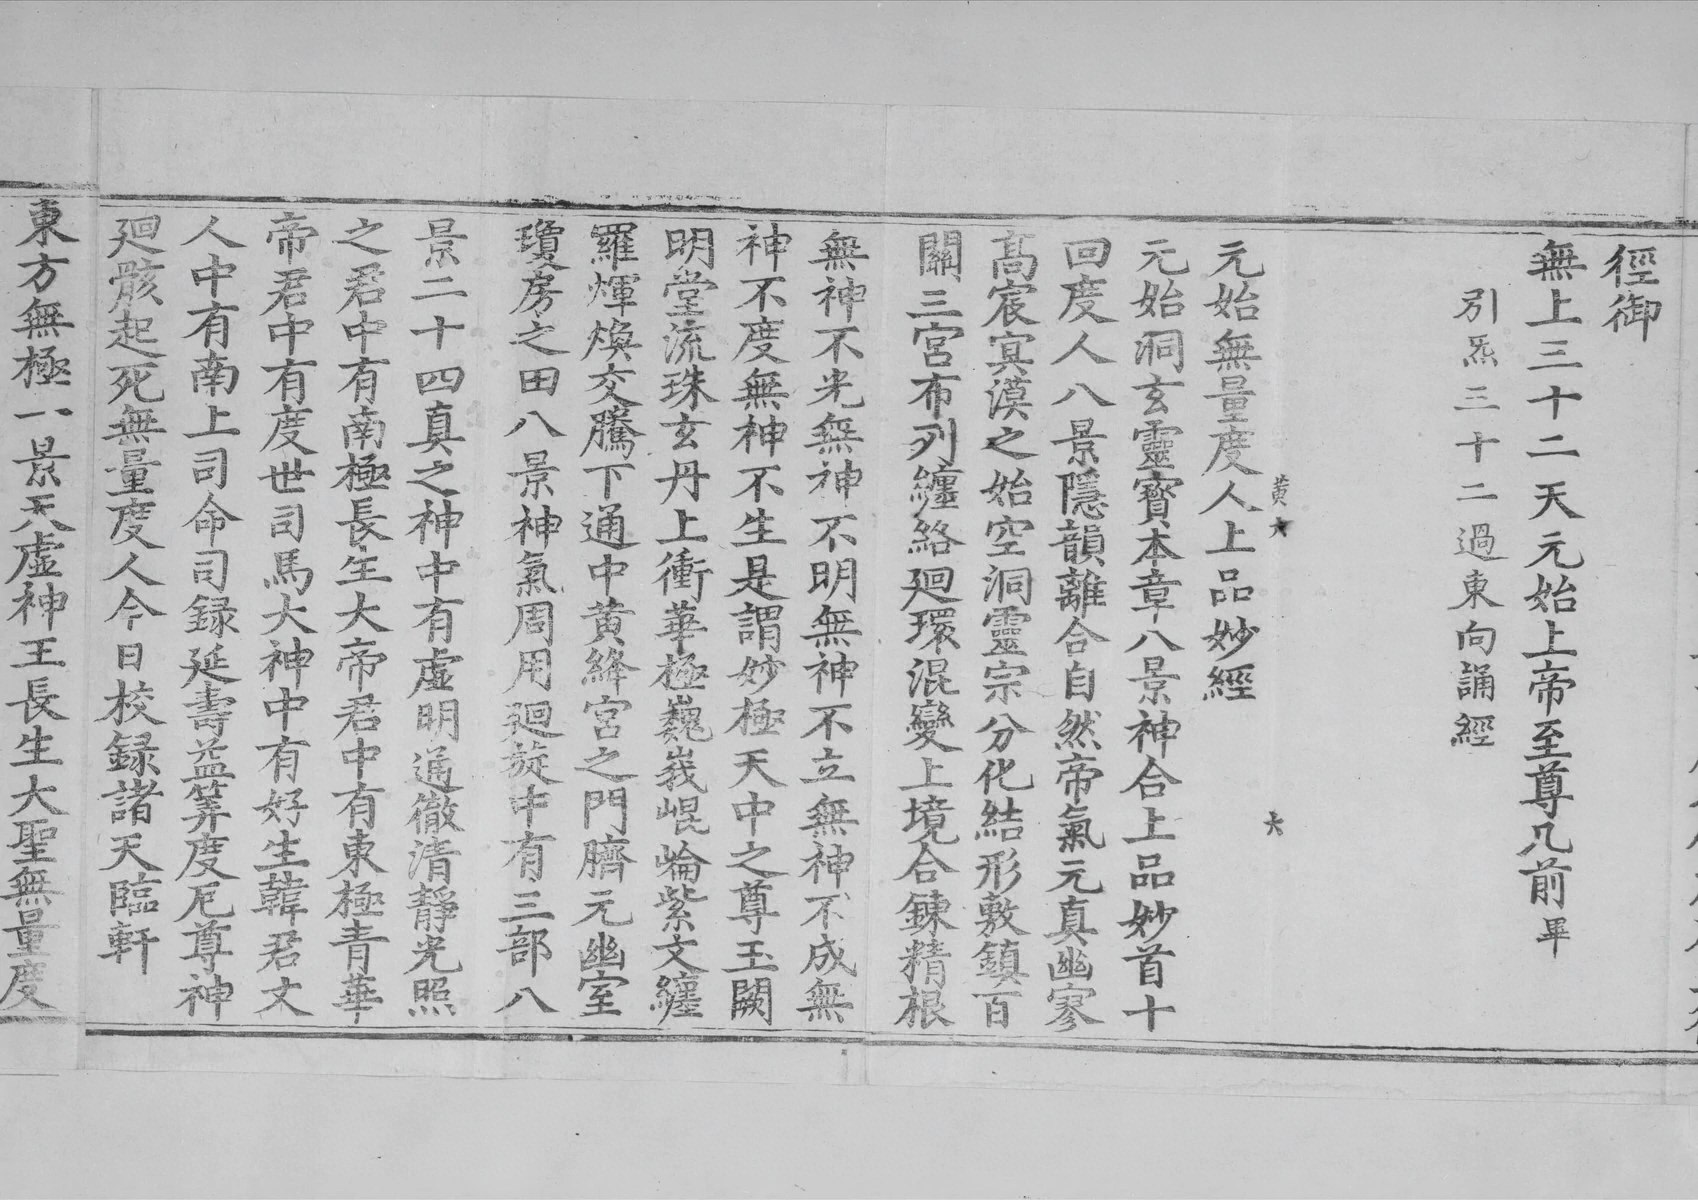 徑御
無上三十二天元始上帝至尊几前畢
引炁三十二過東向誦經
黄
大
元始無量度人上品妙經
元始洞玄靈寳本章八景神合上品妙首十
回度人八景隱韻離合自然帝氣元真幽寥
髙宸㝠漠之始空洞靈宗分化結形敷鎮百
關三宮布列纏絡廻環混變上境合鍊精根
無神不光無神不明無神不立無神不成無
神不度無神不生是謂妙極天中之尊玉闕
明堂流珠玄丹上衝華極巍峩崐崘紫文纏
羅煇煥交騰下通中黄絳宮之門臍元幽室
瓊房之田八景神氣周用廻旋中有三部八
景二十四真之神中有虛明通徹清靜光照
之君中有南極長生大帝君中有東極青華
帝君中有度世司馬大神中有好生韓君丈
人中有南上司命司録延壽益筭度厄尊神
廻骸起死無量度人今日校録諸天臨軒
東方無極一景天虛神王長生大聖無量度